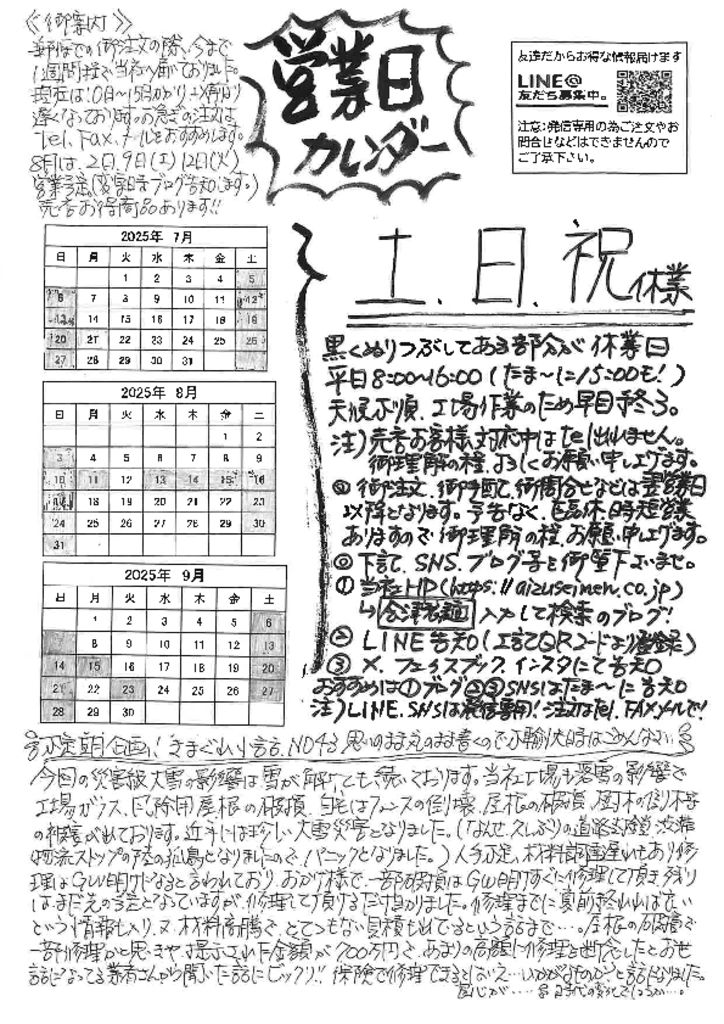 《御案内》
郵便での御注文の際、今まで
1週間程で当社へ届いておりました。
現在は10日～15日かかり、
遅くなっております。お急ぎの注文は
Tel、Fax、メールをおすすめします。
8月は、2日、9日(土)12日(火)
営業予定。(変更時ブログ告知します。)
売店お得商品あります!!
営業日
カレンダー
友達だからお得な情報届けます
LINE@
友だち募集中。
注意:発信専用の為ご注文やお
問合せなどはできませんので
ご了承下さい。
土、日、祝休業
2025年 7月
日 月 火 水 木 金 土
1 2 3 4 5
6 7 8 9 10 11 12
13 14 15 16 17 18 19
20 21 22 23 24 25 26
27 28 29 30 31
2025年 8月
日 月 火 水 木 金 土
1 2
3 4 5 6 7 8 9
10 11 12 13 14 15 16
17 18 19 20 21 22 23
24 25 26 27 28 29 30
31
2025年 9月
日 月 火 水 木 金 土
1 2 3 4 5 6
8 9 10 11 12 13
14 15 16 17 18 19 20
21 22 23 24 25 26 27
28 29 30
黒くぬりつぶしてある部分が休業日
平日8:00~16:00(たま~に15:00も!)
天候不順、工場作業のため早目終了。
注)売店お客様対応中はtel出れません。
御理解の程、よろしくお願い申し上げます。
◎御注文、御手配、御問合せなどは翌営業日
以降となります。予告なく、臨休、時短営業
ありますので御理解の程、お願い申し上げます。
◎下記、SNS、ブログ等を御覧下さいませ。
①当社HP(https://aizuseimen.co.jp)
↳会津製麺 入力して検索のブログ!
②LINE告知(上記QRコードより登録)
③X、フェイスブック、インスタにて告知
おすすめは①ブログ②③SNSはたま~に告知
注)LINE、SNSは発信専用!注文はtel、FAX、メールで!
不定期企画!きまぐれ小言、NO43 思いのまま見のまま書くので不愉快な時はごめんなさい
今回の災害級大雪の影響は雪が解けても続いております。当社工場も落雪の影響で
工場ガラス、風除用屋根の破損、自宅はフェンスの倒壊、屋根の破損、樹木の倒木等
の被害が出ております。近年にはまれしい大雪災害となりました。
物流ストップの陸の孤島となりましたので、パニックとなりました。)人手不足、材料調達遅れもあり修
理はGW明けになると言われており、おかげ様で一部破損はGW明けすぐに修理して頂き、残り
はまだ先の予定となっていますが、修理して頂けるだけ助かりました。
という情報も入り、又、材料高騰で、とてつもない見積も出ているという話まで…。屋根の破損で
一部修理かと思いきや、提示された金額が700万円で、あまりの高額に修理を断念したとお世
話になってる業者さんから聞いた話にビックリ!!保険で修理できるとはいえ…いかがなものか?と話になりました。